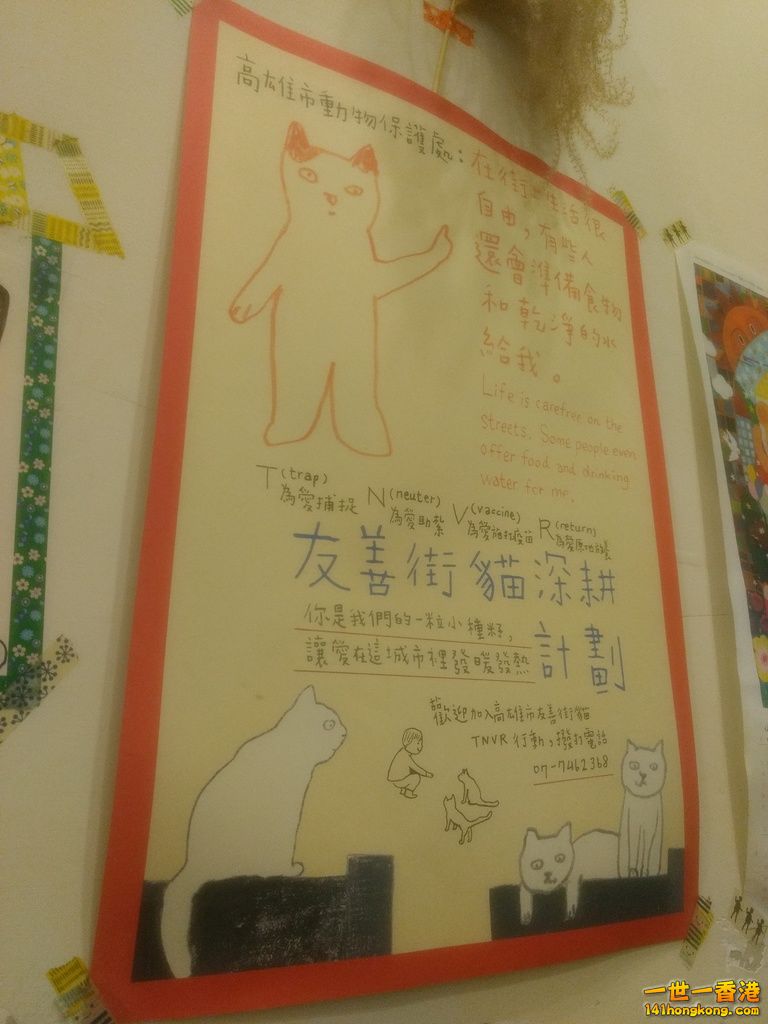 高雄市動物保護處：
在街上生活很
自由，有些人
還會準備食物
和乾淨的水
給我。
Life is carefree on the
streets. Some people even
offer food and drinking
water for me.
T(trap) 為愛捕捉
N(neuter) 為愛助紮
V(vaccine) 為愛施打疫苗
R(return) 為愛原地放養
友善街貓深耕
計劃
你是我們的一粒小種籽，
讓愛在這城市裡發暖發熱
歡迎加入高雄市友善街貓
TNVR 行動，撥打電話
07-7462368
一世一香港
141hongkong.com